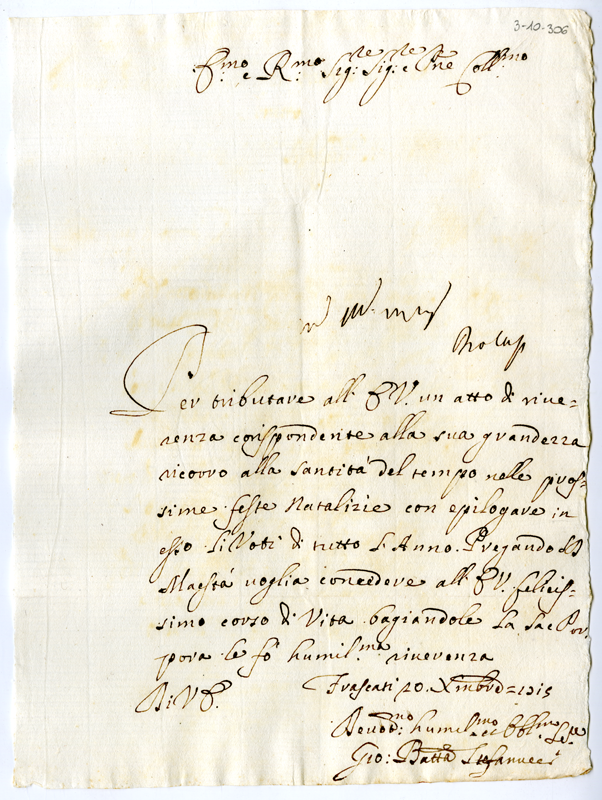 3-10-306
E.mo e R.mo Sig.re Sig.re e Pne Coll.mo
Per tributare all' E V. un atto di rive=
renza corispondente alla sua grandezza
ricorro alla santità del tempo nelle pros=
sime feste Natalizie con epilogare in
esso li Voti di tutto l'Anno. Pregando S D
Maestà voglia concedere all' E V. felicis=
simo corso di Vita, bagiandole la Sac Por.
pora le fò humil.ma riverenza
Di V E.
Frascati 20. Xmbre
Devot.mo humil.mo et obbl.mo
Gio: Batta Stefanucci